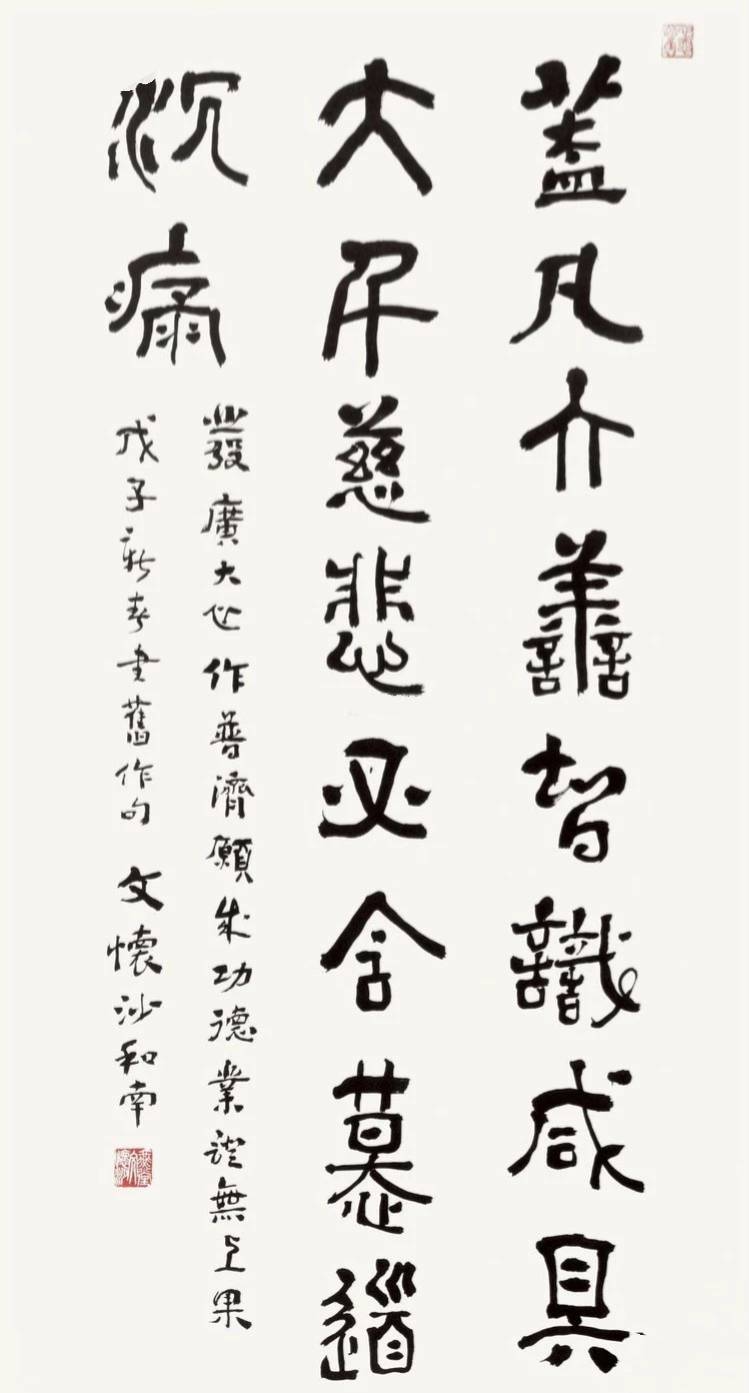 蓋凡大善智識咸具
大千慈悲必含慕道
沉痛
發廣大心作普濟願成功德業證無上果
戊子新春書舊作句 文懷沙和南